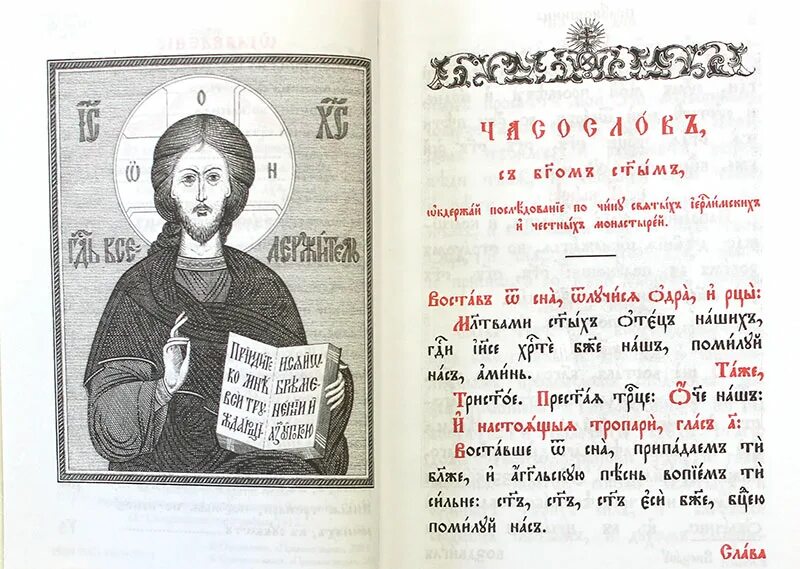 І҃С
Х҃С
Ѻ
Ѡ
Н
ГДⷭ҇Ь ВСЕ-
ДЕРЖИТЕЛЬ
ПРИИДИТЕ
КО МНѢ
ВСИ ТРУ
ЖДАЮЩІ
ИСѦ И Ѡ
БРЕМЕ
НЕНІИ И
АЗ УПОКОЮ
ЧАСОСЛО́ВЪ,
съ бг҃омъ ст҃ы́мъ,
ѡ҆бдержа́й послѣ́дованїе по чи́нꙋ свѧты́хъ і҆ерⷭ҇ли́мскихъ
и҆ честны́хъ монастыре́й.
Воста́въ ѿ сна̀, ѿлꙋчи́сѧ ѻ҆дра̀, и҆ рцы̀:
Мл҃твами ст҃ы́хъ ѻ҆тє́цъ на́шихъ,
гдⷭ҇и і҆и҃се хрⷭ҇тѐ бж҃е на́шъ, поми́лꙋй
на́съ, а҆ми́нь. Та́же,
Трист҃о́е. Прест҃а́ѧ трⷪ҇це: Ѻ҆́ч҃е на́шъ:
И҆ настоѧ́щыѧ тропари̑, гла́съ а҃:
Воста́вше ѿ сна̀, припа́даемъ тѝ
бл҃же, и҆ а҆́гг҃льскꙋю пѣ́снь вопїе́мъ тѝ
си́льне: ст҃ъ, ст҃ъ, ст҃ъ є҆сѝ бж҃е, бцⷣею
поми́лꙋй на́съ.
Сла́ва